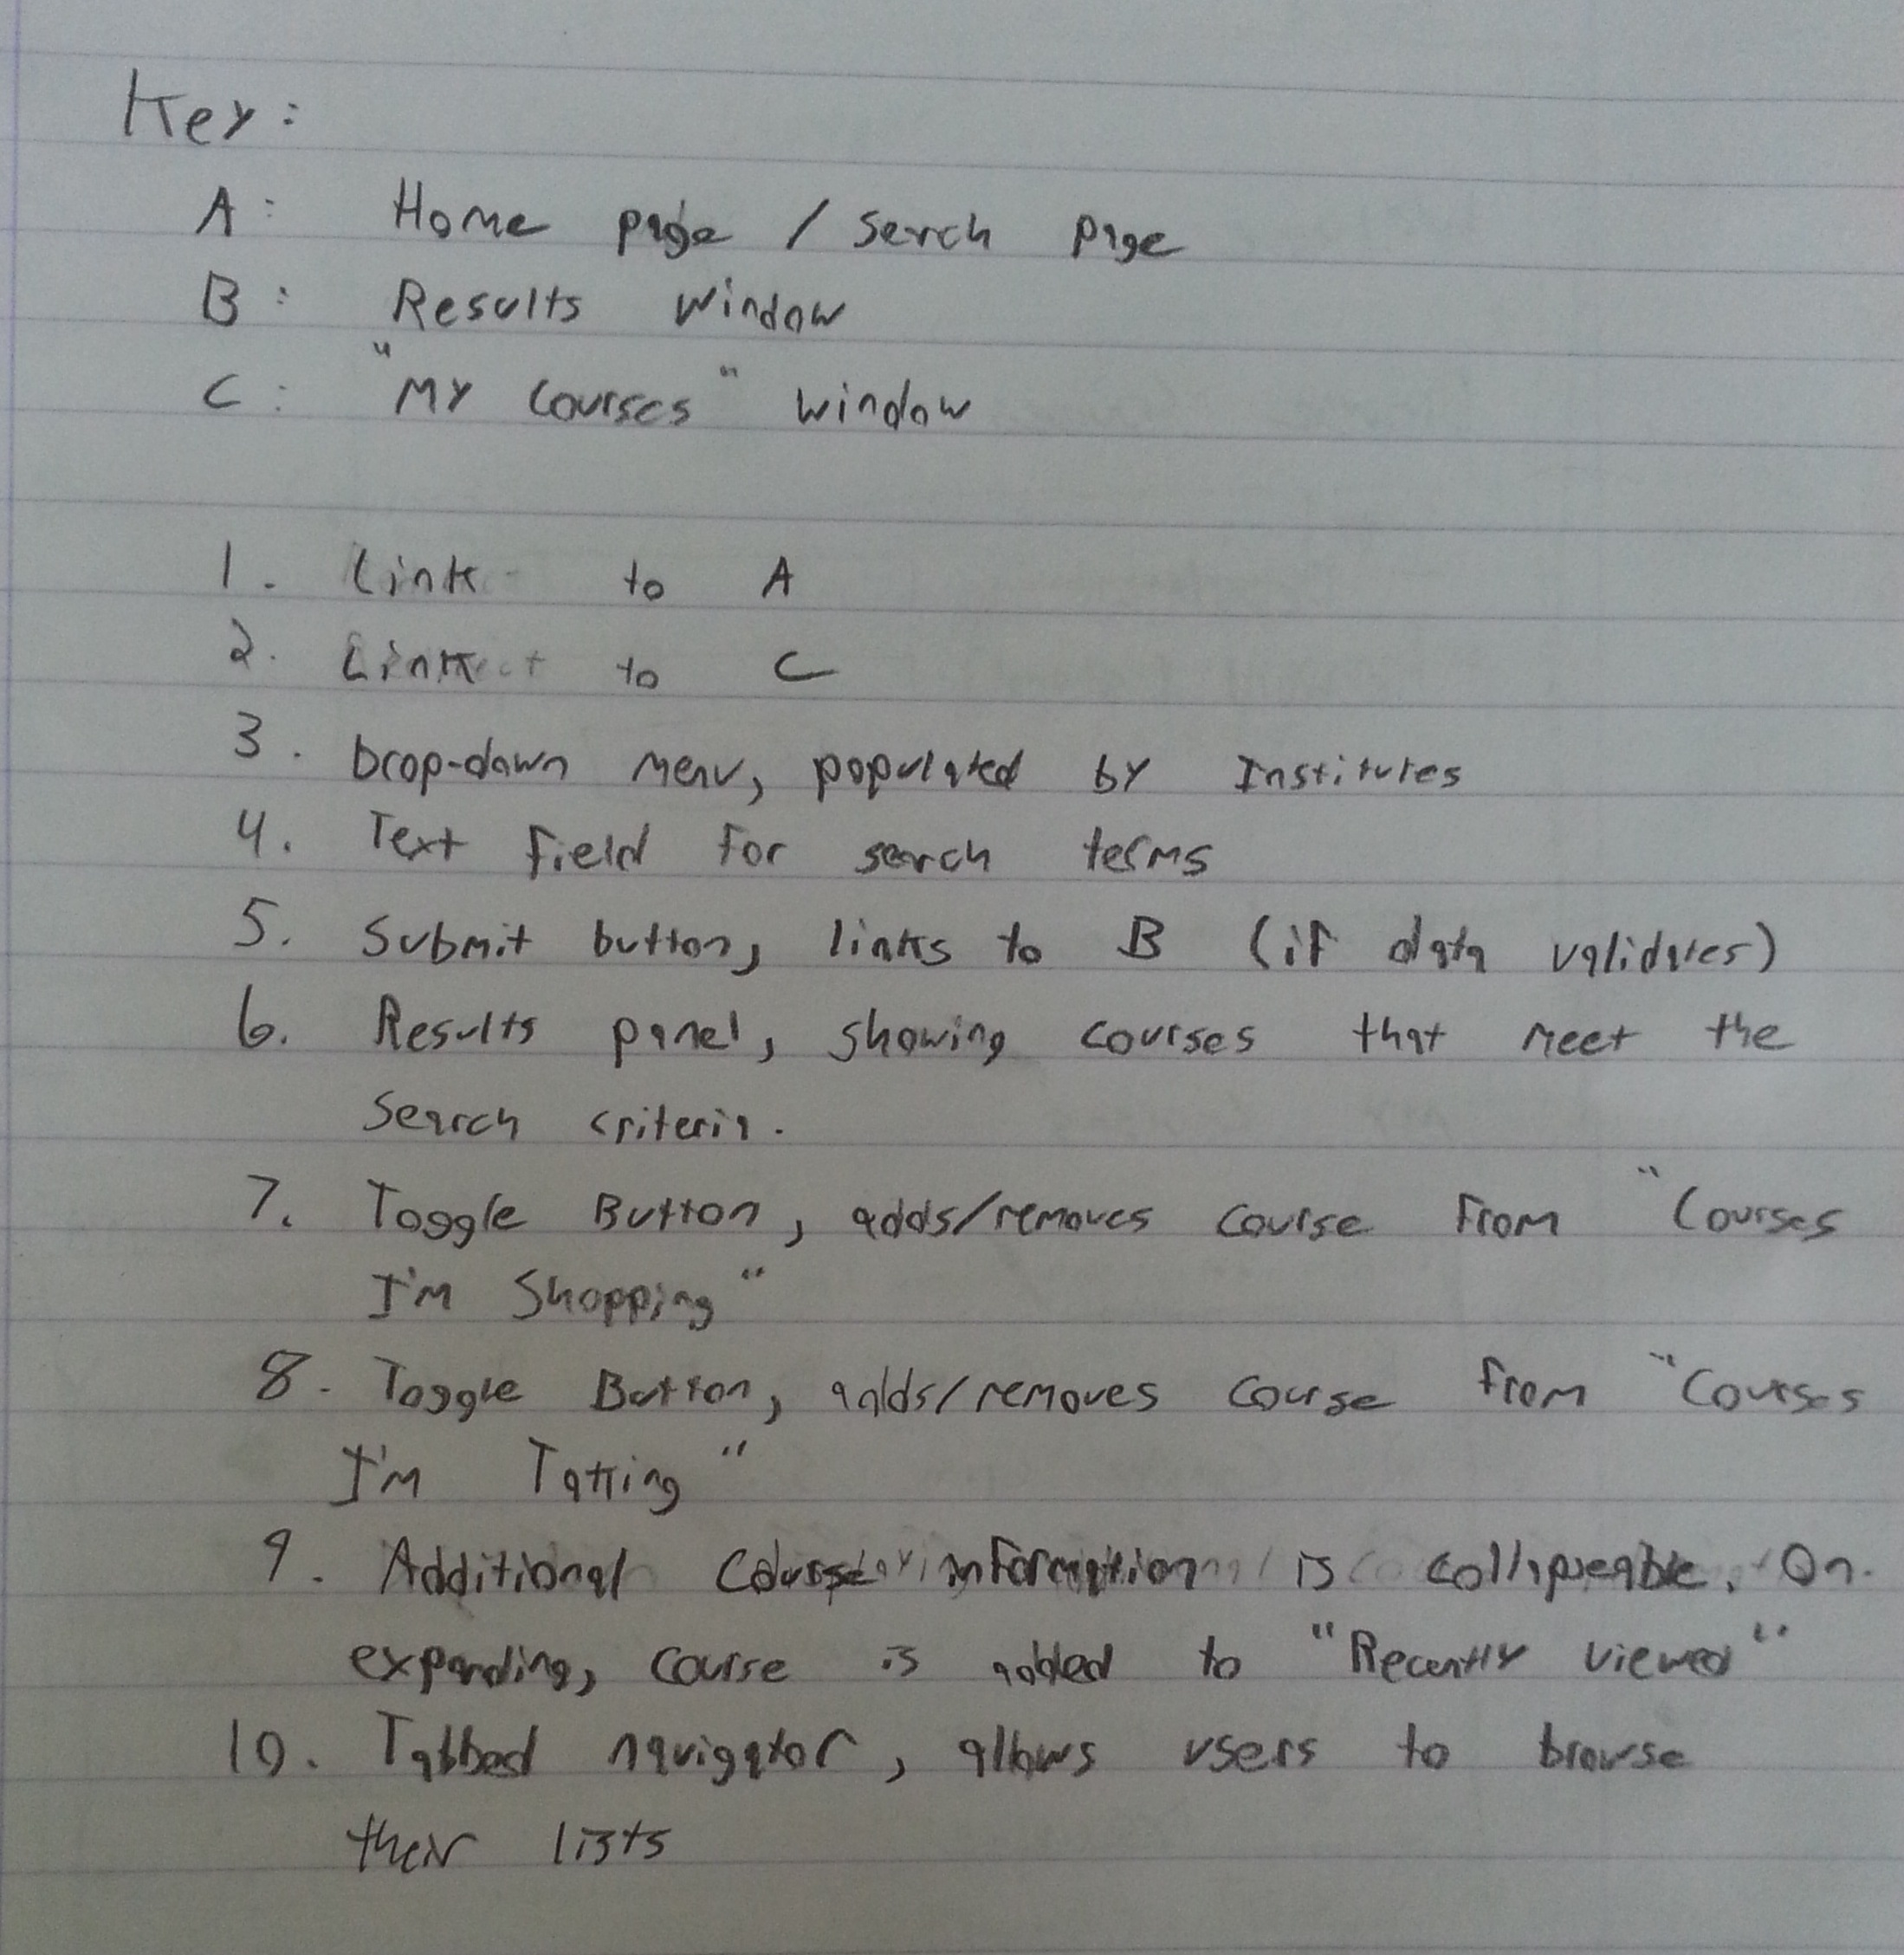 Key:
A: Home page / Serch page
B: Results window
C: "My Courses" window
1. Link to A
2. Link to C
3. Drop-down menu, populated by Institutes
4. Text field for search terms
5. Submit button, links to B (if data validates)
6. Results panel, showing courses that meet the
search criteria.
7. Toggle Button, adds/removes course from "Courses
I'm Shopping"
8. Toggle Button, adds/removes course from "Courses
I'm Taking"
9. Additional Course information is collapseable. On
expanding, course is added to "Recently viewed"
10. Tabbed navigator, allows users to browse
their lists